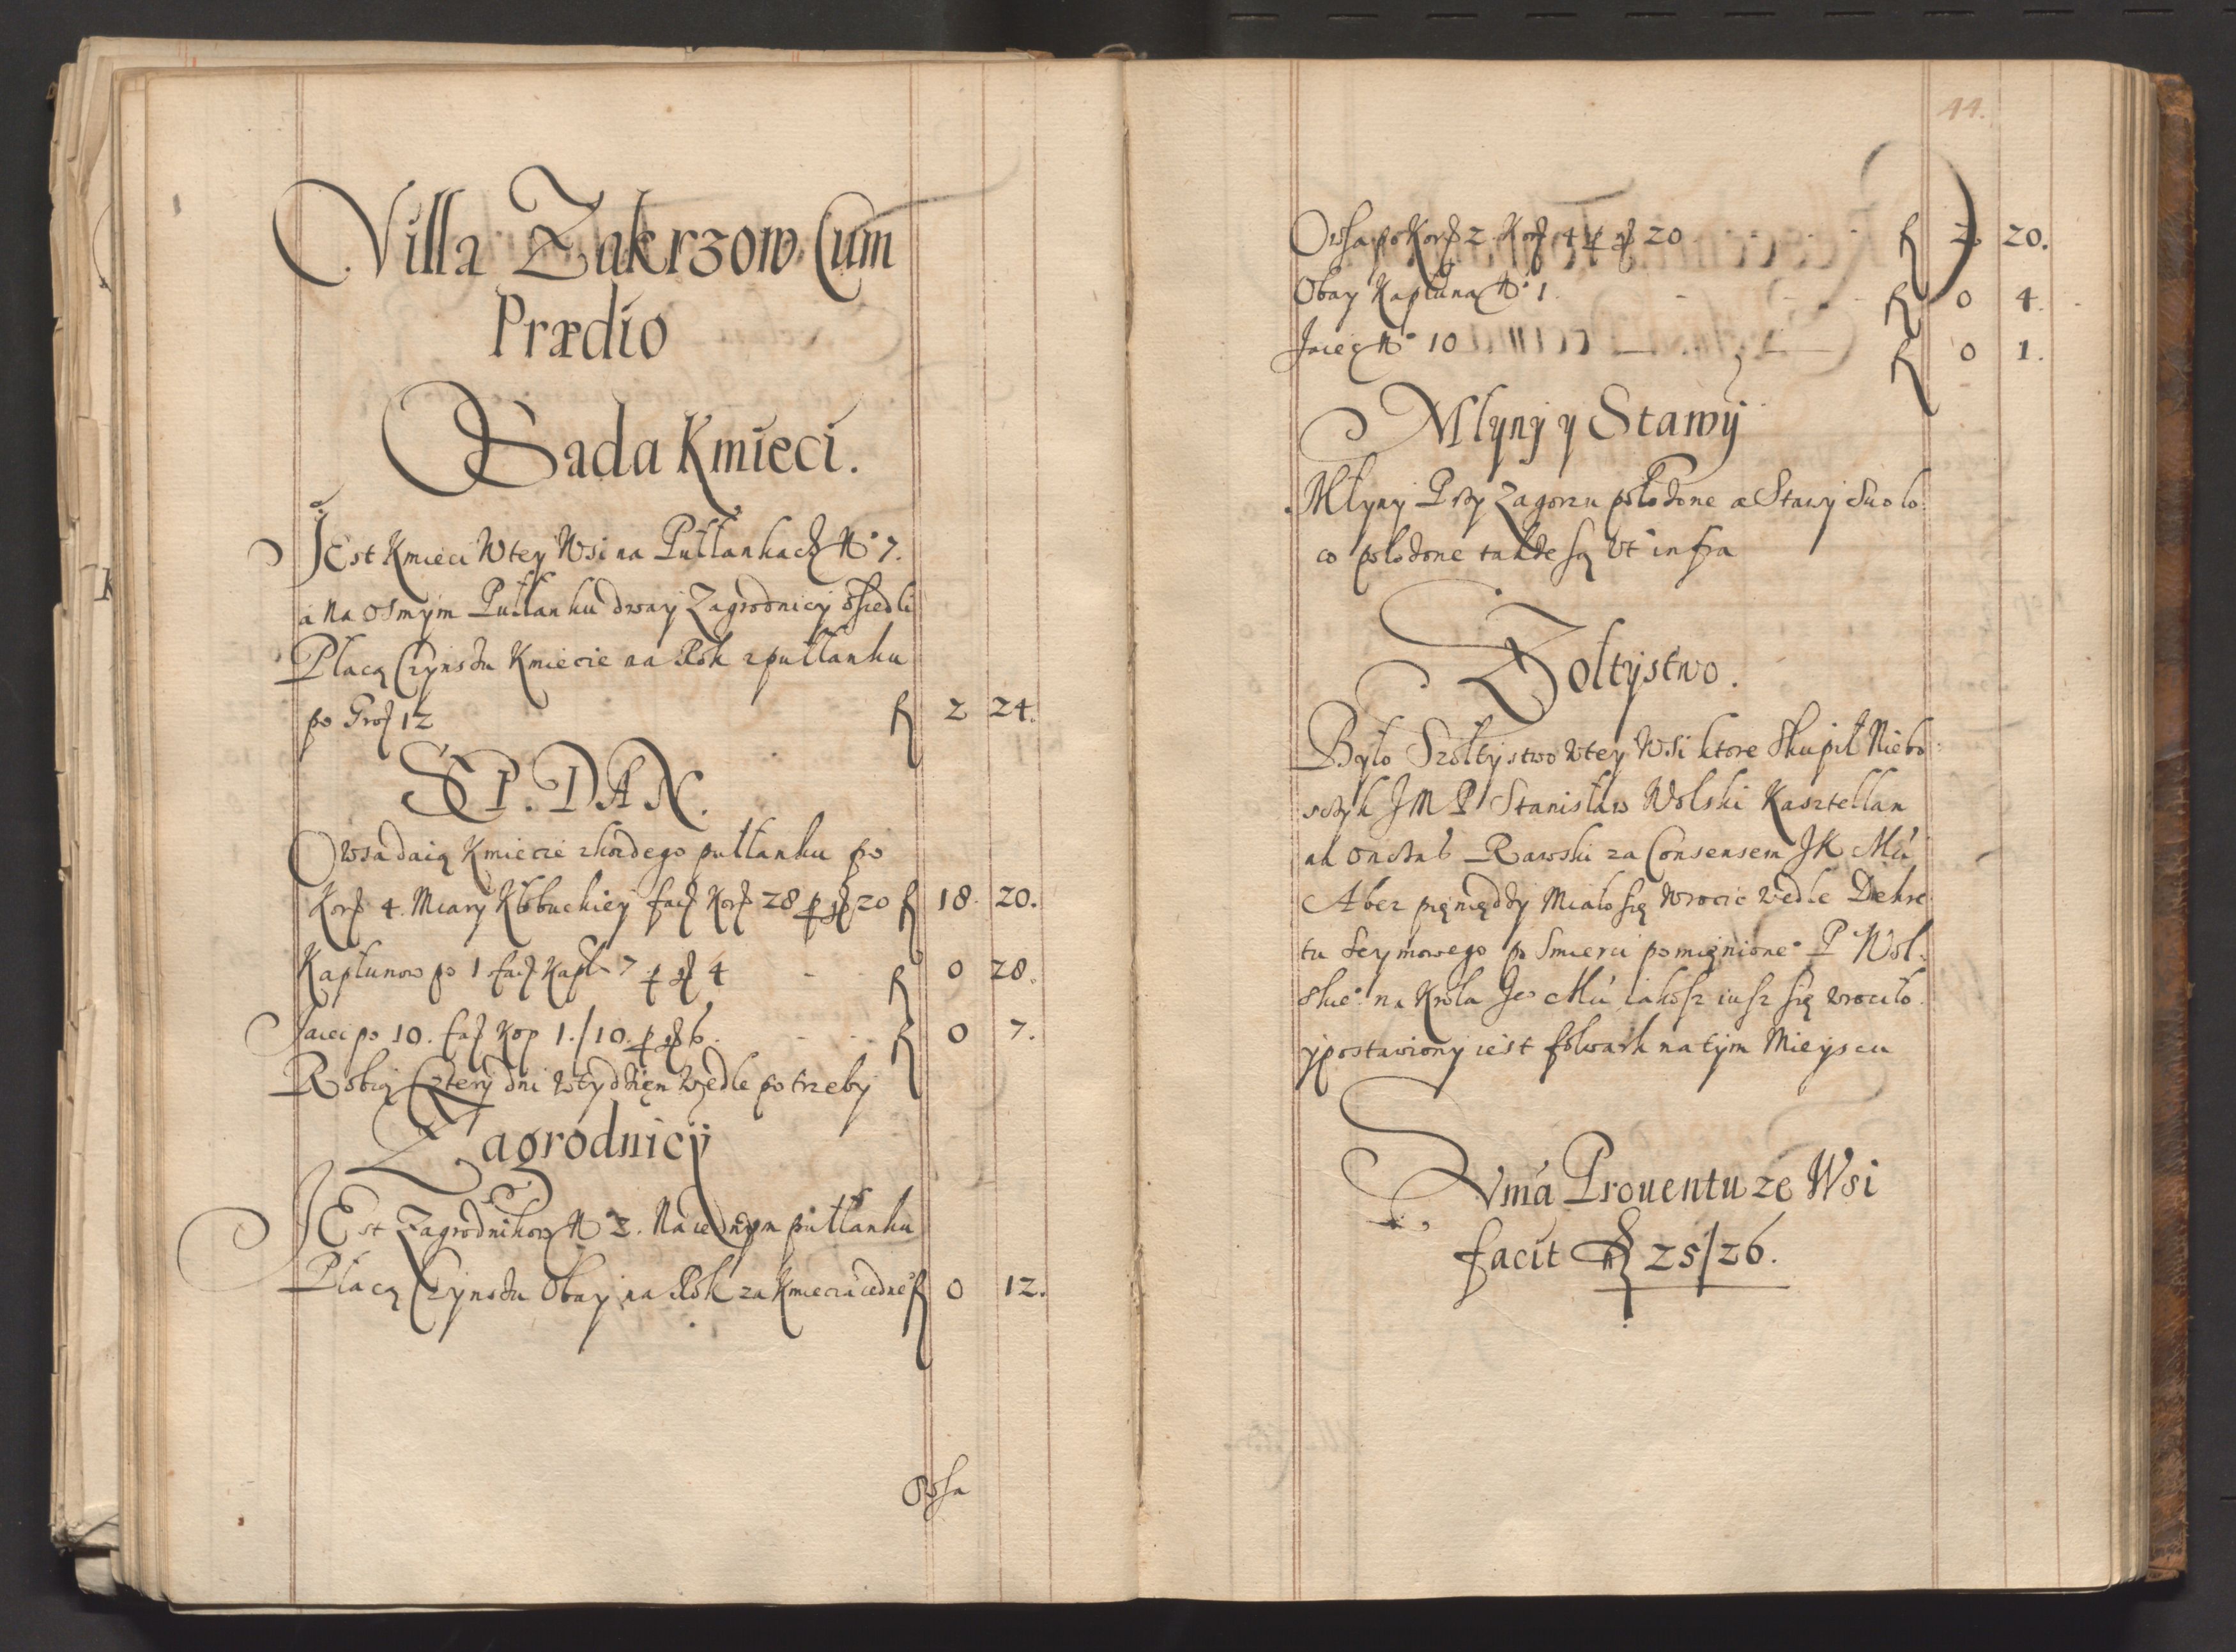 Villa Zakrzow Cum
Prædio
Sada Kmieci.
JEst Kmieci Wtey Wsi na Pułłankach No 7.
a na osmym Pułłanku dway Zagrodnicy osiedli
Płacą Czynszu Kmiecie na Rok zpułłanku
po Gros 12 fl 2 24.
SEP. DAN.
Owsa daią Kmiecie zkożdego pułłanku po
Kor 4. Miary Kłobuckiey faci Kor 28 p gr 20 fl 18 20.
Kapłunow po 1 faci Kapł 7 p gr 4 fl 0 28.
Jaiec po 10. faci Kop 1./10. p gr 6. fl 0 7.
Robią Cztery dni wtydzięn wedle potrzeby
Zagrodnicy
JEst Zagrodnikow No 2. Na iednym pułłanku
Płacą Czynszu Obay na Rok za Kmiecia iedneo fl 0 12.
Owsa
44.
Owsa po Kor 2 Kor 4 p gr 20 fl 2 20.
Obay Kapłuna No 1. fl 0 4.
Jaiec No 10 fl 0 1.
Młyny y Stawy
Młyny Przy Zagorzu połozone a Stawy Suo lo:
co położone także są Vt infra
Zoltystwo.
Było Szołtystwo Wtey Wsi ktore Skupił Niebo:
sczyk JMP Stanisław Wolski Kasztellan
na onczas Rawski za Consensem JK Mci
A bez pięniędzy Miało się Wrocic Wedle Dekre
tu Seymowego po Smierci pomięnioneo P Wol:
skieo na Krola Jeo Mci iakosz iusz się wrociło
y postawiony iest folwark na tym Mieyscu
Suma Prouentu ze Wsi
facit fl 25/26.